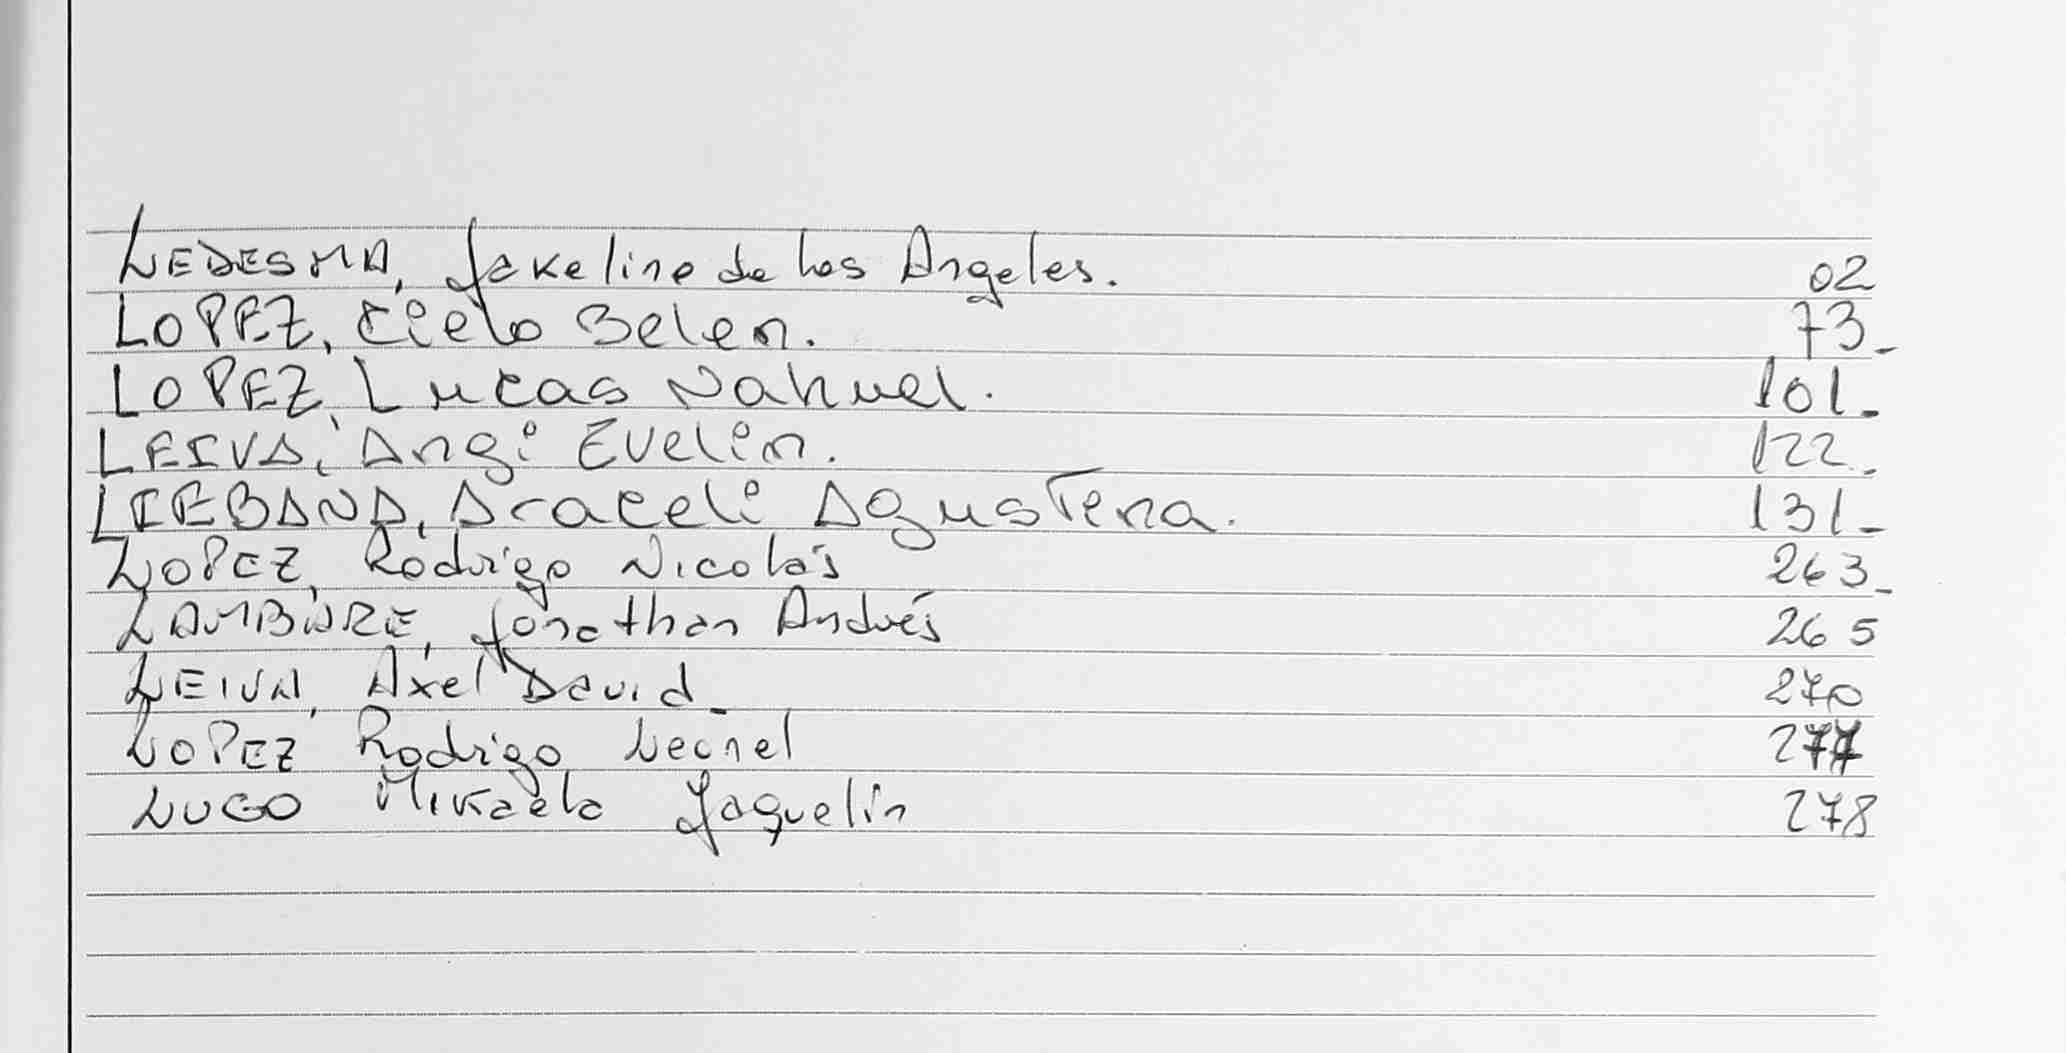 LEDESMA, Jakeline de los Angeles. 02
LOPEZ, Cielo Belen. 73_
LOPEZ, Lucas Nahuel. 101_
LEIVA, Angi Evelin. 122_
LIEBANA, Araceli Agustina. 131_
LOPEZ, Rodrigo Nicolás 263_
LAMBARE, Jonathan Andrés 265
LEIVA, Axel David_ 270
LOPEZ Rodrigo Leonel 277
LUGO Mikaela Jaquelin 278